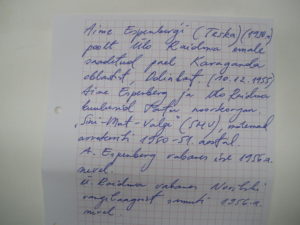 Aime Espenberg'i (Teska) (1930.a)
poolt Ülo Raidma emale
saadetud pael Karaganda
oblastist, Dolinkat. (10.12.1955)
Aime Espenberg ja Ülo Raidma
kuulusid Tartu noorteorgan.
"Sini-Must-Valge" (SMV), mõlemad
arreteeriti 1950-51. aastal.
A. Espenberg vabanes 1956.a.
Ü. Raidma vabanes Norilski
vangilaagrist samuti 1956.a.